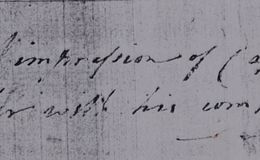 impression of Ca
with his com